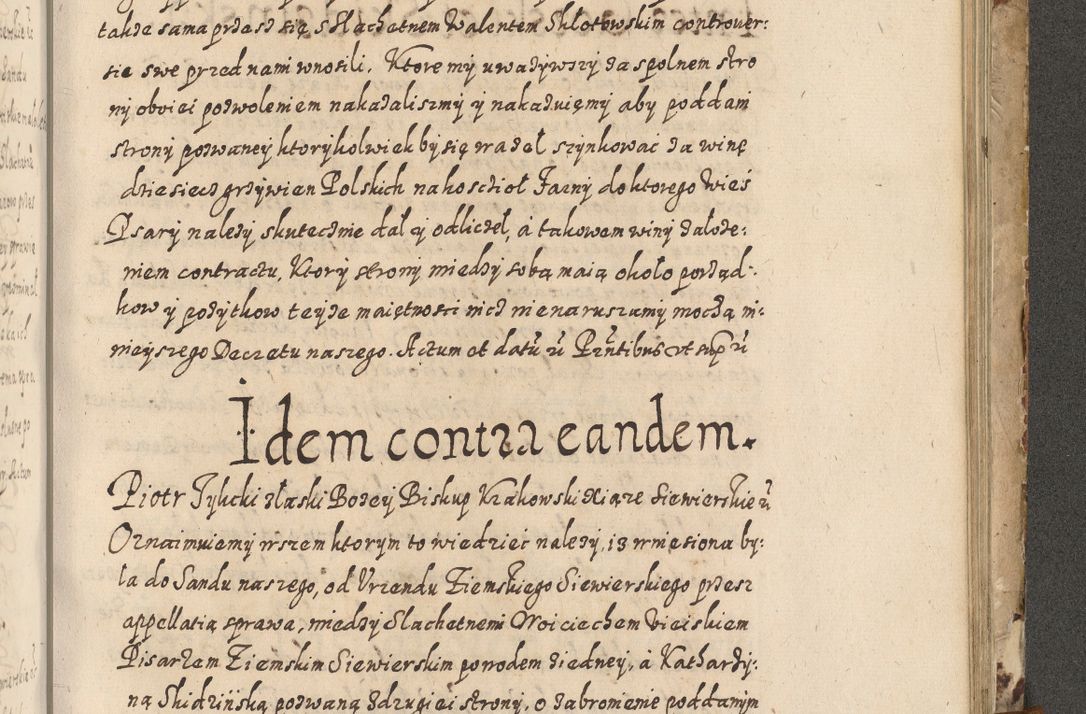 takze sama przesz się s Slachetnem Walentem Skłotowskim controuer:
sie swe przed nami wnosili. Ktore my uwazywszy za spolnem stro
ny oboiei pozwoleniem nakazalismy y nakazuięmy aby poddani
strony pozwaney ktorykolwiek by się wazel szynkowac za winę
dziesiecz grzywien Polskich na kosczioł Farny do ktorego wies
Psary nalezy skutecznie dał y odliczeł, a takowem winy załoze:
niem contractu, Ktory strony miedzy sobą maią około porząd:
kow y pozytkow teyze maiętnosci nicz nie naruszamy moczą ni:
nieyszego Decretu naszego. Actum et datū ū Pr̄ntibus vt sup ū
Idem contra eandem.
Piotr Tylicki złaski Bozey Biskup Krakowski Xiąze Siewierskie ū
Oznaimuiemy wszem ktorym to wiedziec nalezy, iz wniesiona by:
ła do Sandu naszego, od Vrzendu Ziemskiego Siewierskiego przesz
appellatią sprawa, miedzy Slachetnemi Woiciechem Bieiskiem
Pisarzem Ziemskim Siewierskim powodem ziedney, a Katharzy:
ną Skidzińską pozwaną zdrugiei strony, o zabronienie poddanym